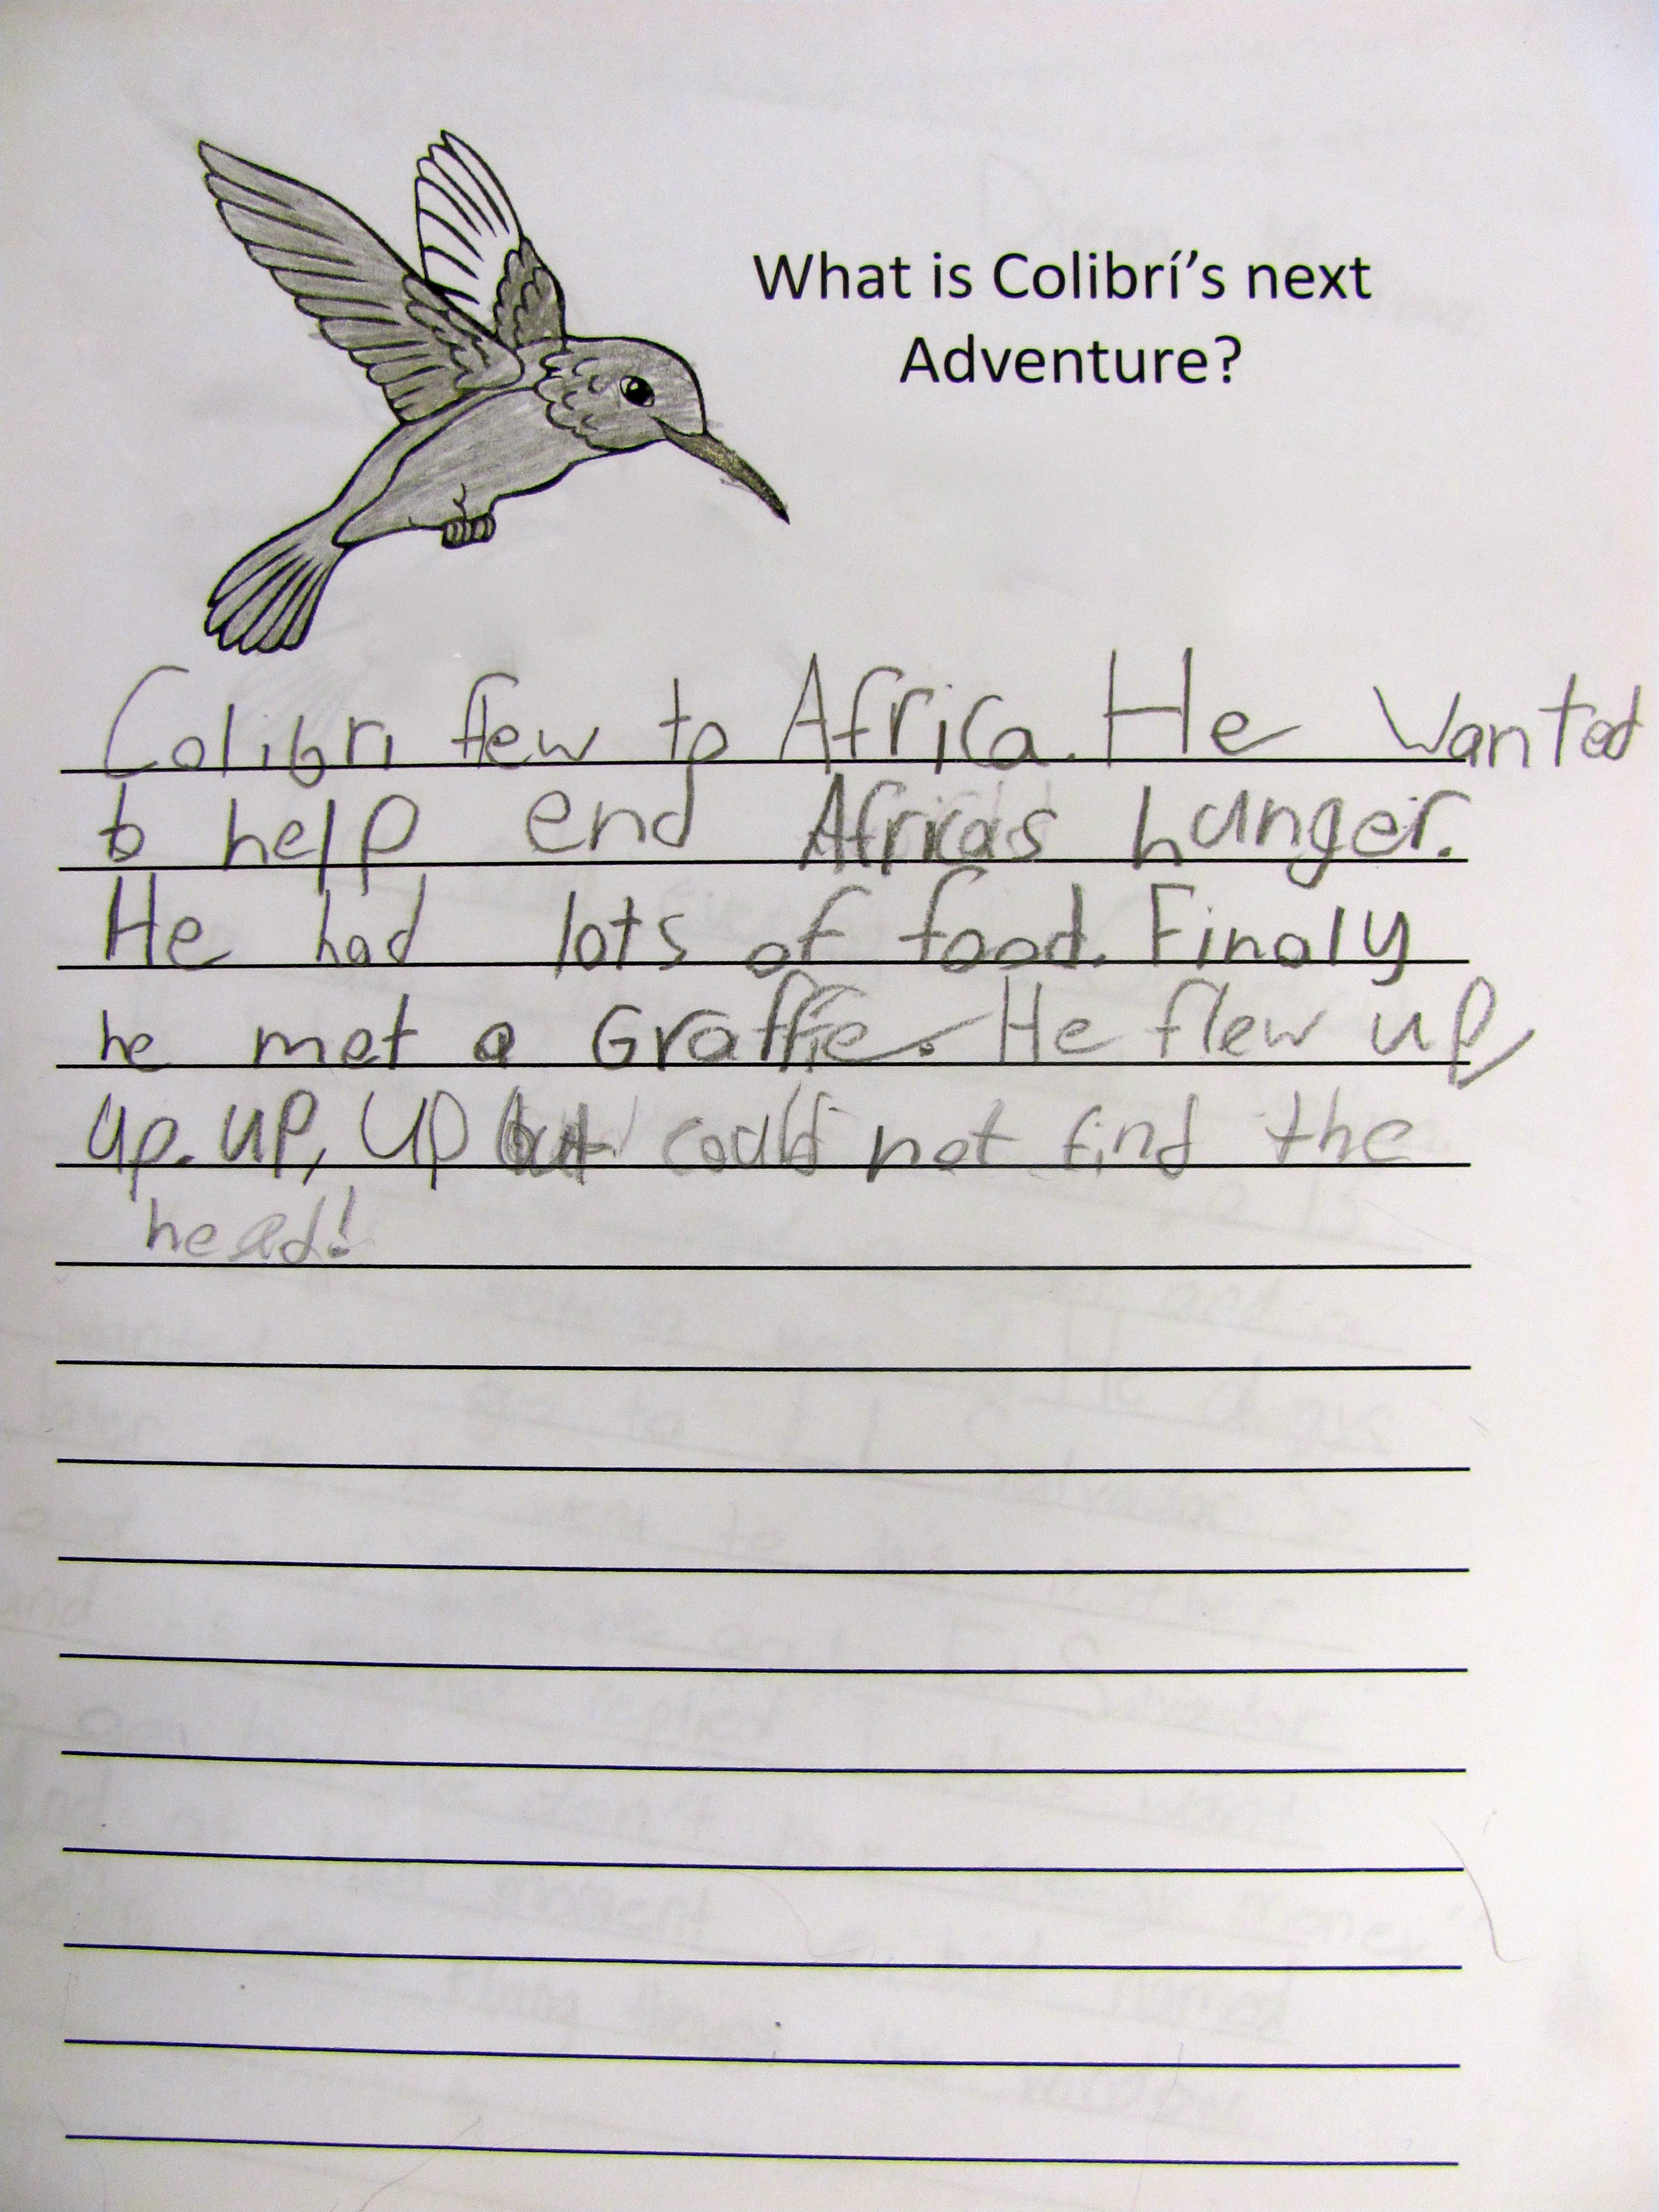 What is Colibrí's next
Adventure?
Colibri flew to Africa. He Wanted
to help end Africas hunger.
He had lots of food. Finaly
he met a Graffie. He flew up,
up. up, up but could not find the
head!